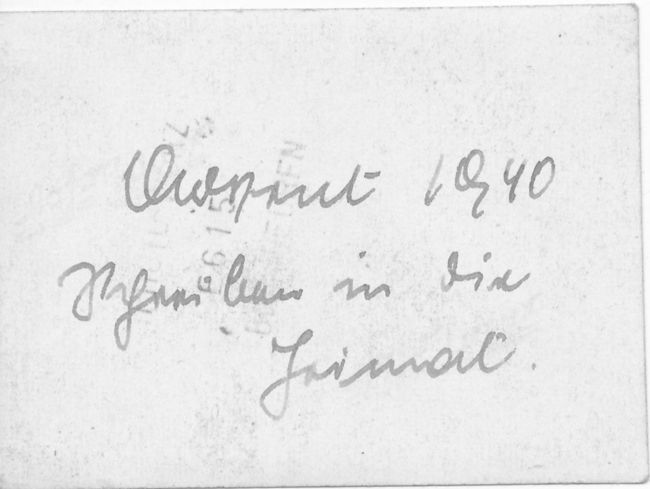 Advent 1940
Schreiben in die
Heimat.